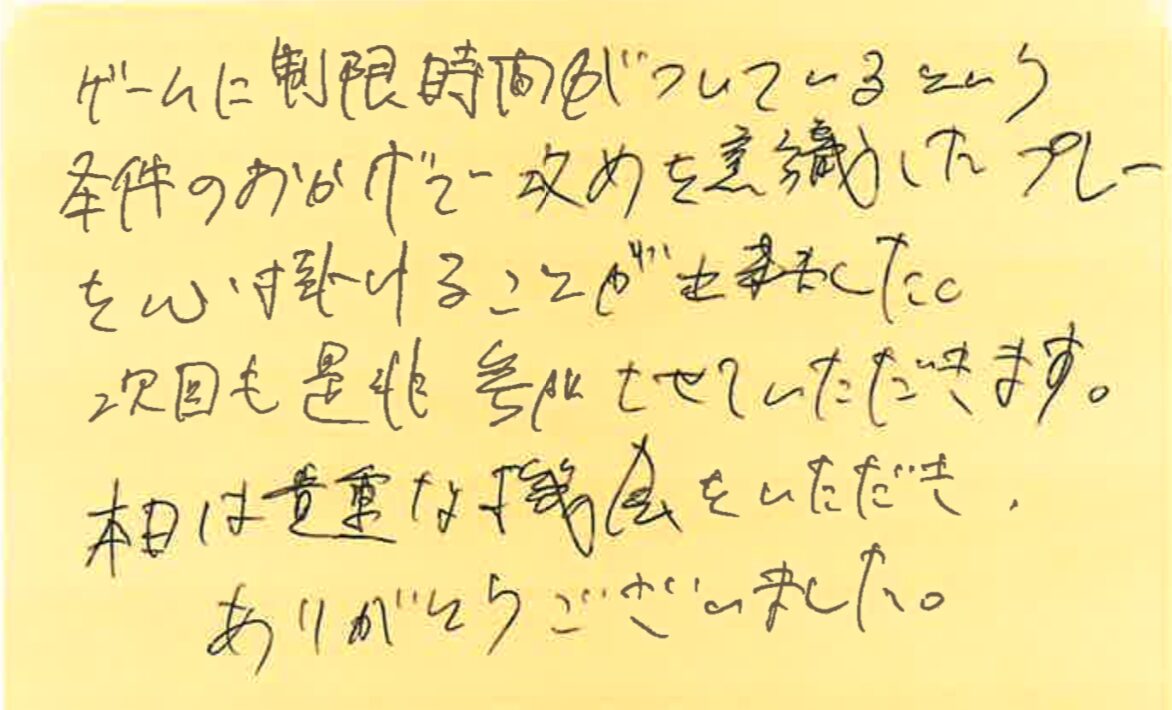 ゲームに制限時間がついているという
条件のおかげで攻めを意識したプレー
を心掛けることが出来ました。
次回も是非参加させていただきます。
本日は貴重な機会をいただき、
ありがとうございました。